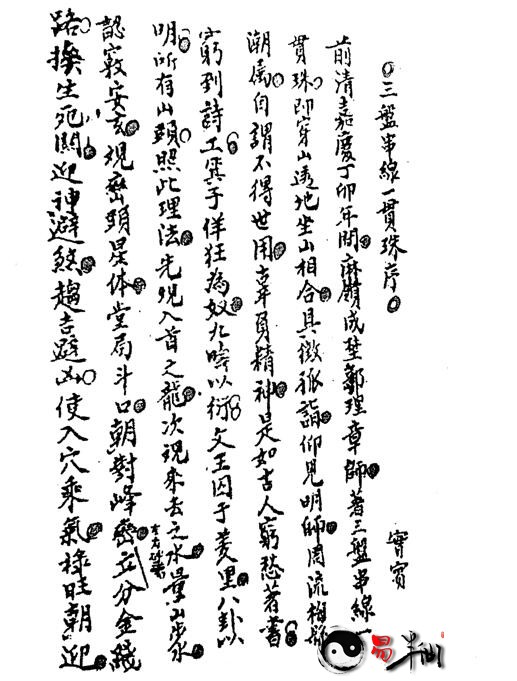 三盤串線一貫珠序
寶賓
前清嘉慶丁卯年間麻巔成楚鄭理章師著三盤串線一
貫珠即穿山透地坐山相合具徵孤詣仰見明師周流相
潮屬自謂不得世用辜負精神是如古人窮愁著書
窮到詩工箕子佯狂為奴九疇以衍文王囚于羑里八卦以
明所有山頭照此理法先現入首之龍次現來去之水量山步水
認竅安玄現巒頭星体堂局斗口朝對峰巒立分金綫
路撥生死關迎神避煞趨吉避凶使入穴乘氣祿旺朝迎
易半仙